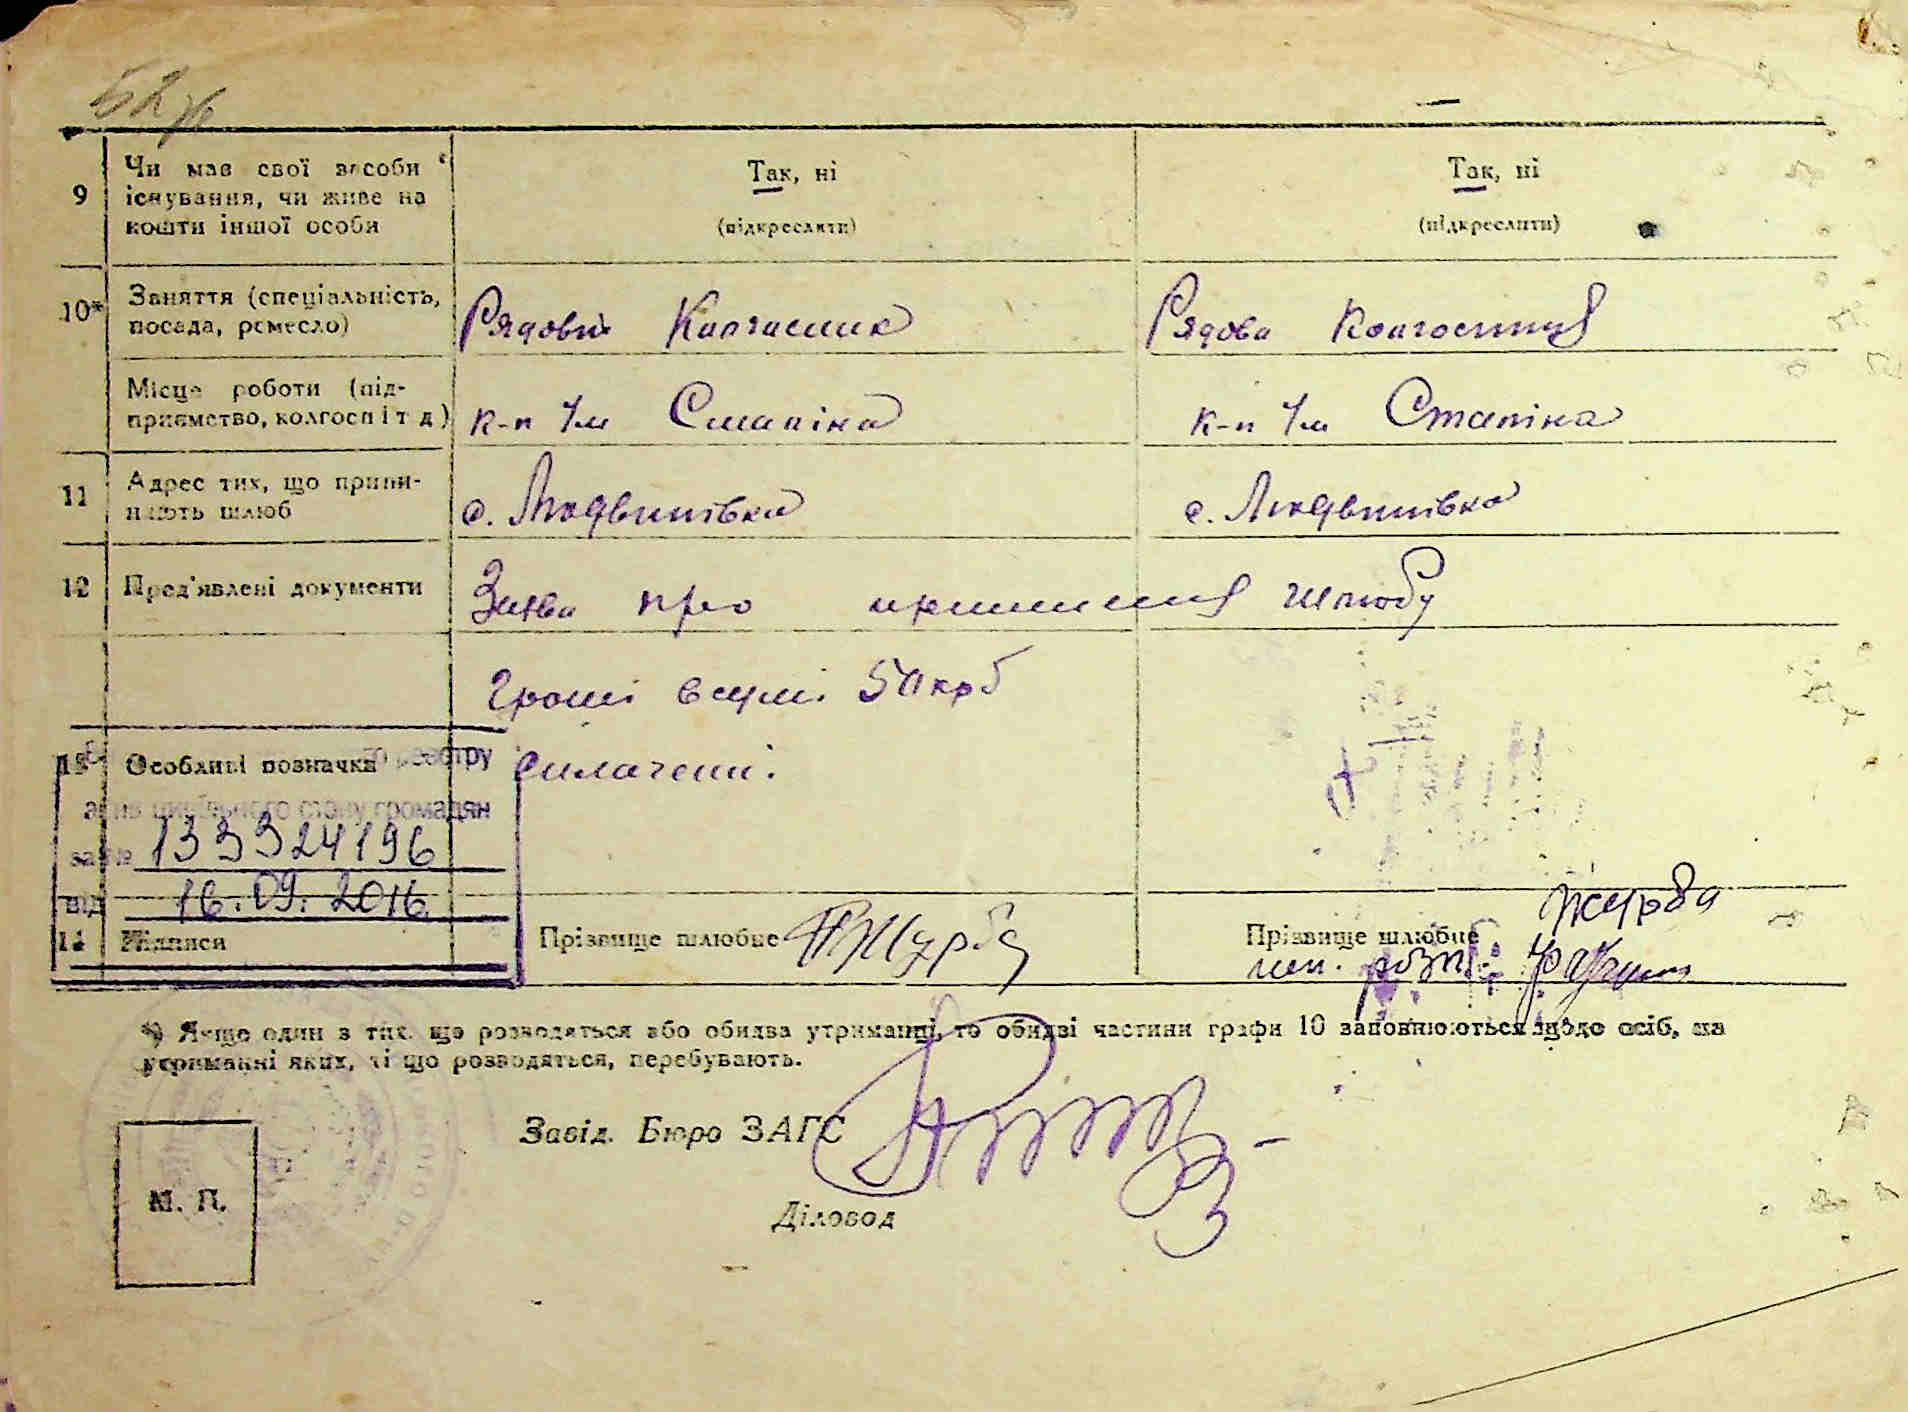 9 Чи має свої засоби Так, ні Так, ні
існування, чи живе на
кошти іншої особи (підкреслити) (підкреслити)
10* Заняття (спеціальність, Рядовий Колгоспник Рядова Колгоспниця
посада, ремесло)
Місце роботи (під-
приємство, колгосп і т д) к-п Ім Сталіна к-п Ім Сталіна
11 Адрес тих, що припи-
няють шлюб с. Людвинівка с. Людвинівка
12 Пред'явлені документи Заява про припинення шлюбу
Гроші в сумі 50 крб
13 Особливі позначки реєстру сплачені.
актів цивільного стану громадян
за № 133324196
від 16.09.2016
Журба
14 Підписи Прізвище шлюбне Журба Прізвище шлюбне
*) Якщо один з тих, що розводяться або обидва утриманці, то обидві частини графи 10 заповнюються щодо осіб, на
утриманні яких, ті що розводяться, перебувають.
Завід. Бюро ЗАГС
М. П.
Діловод